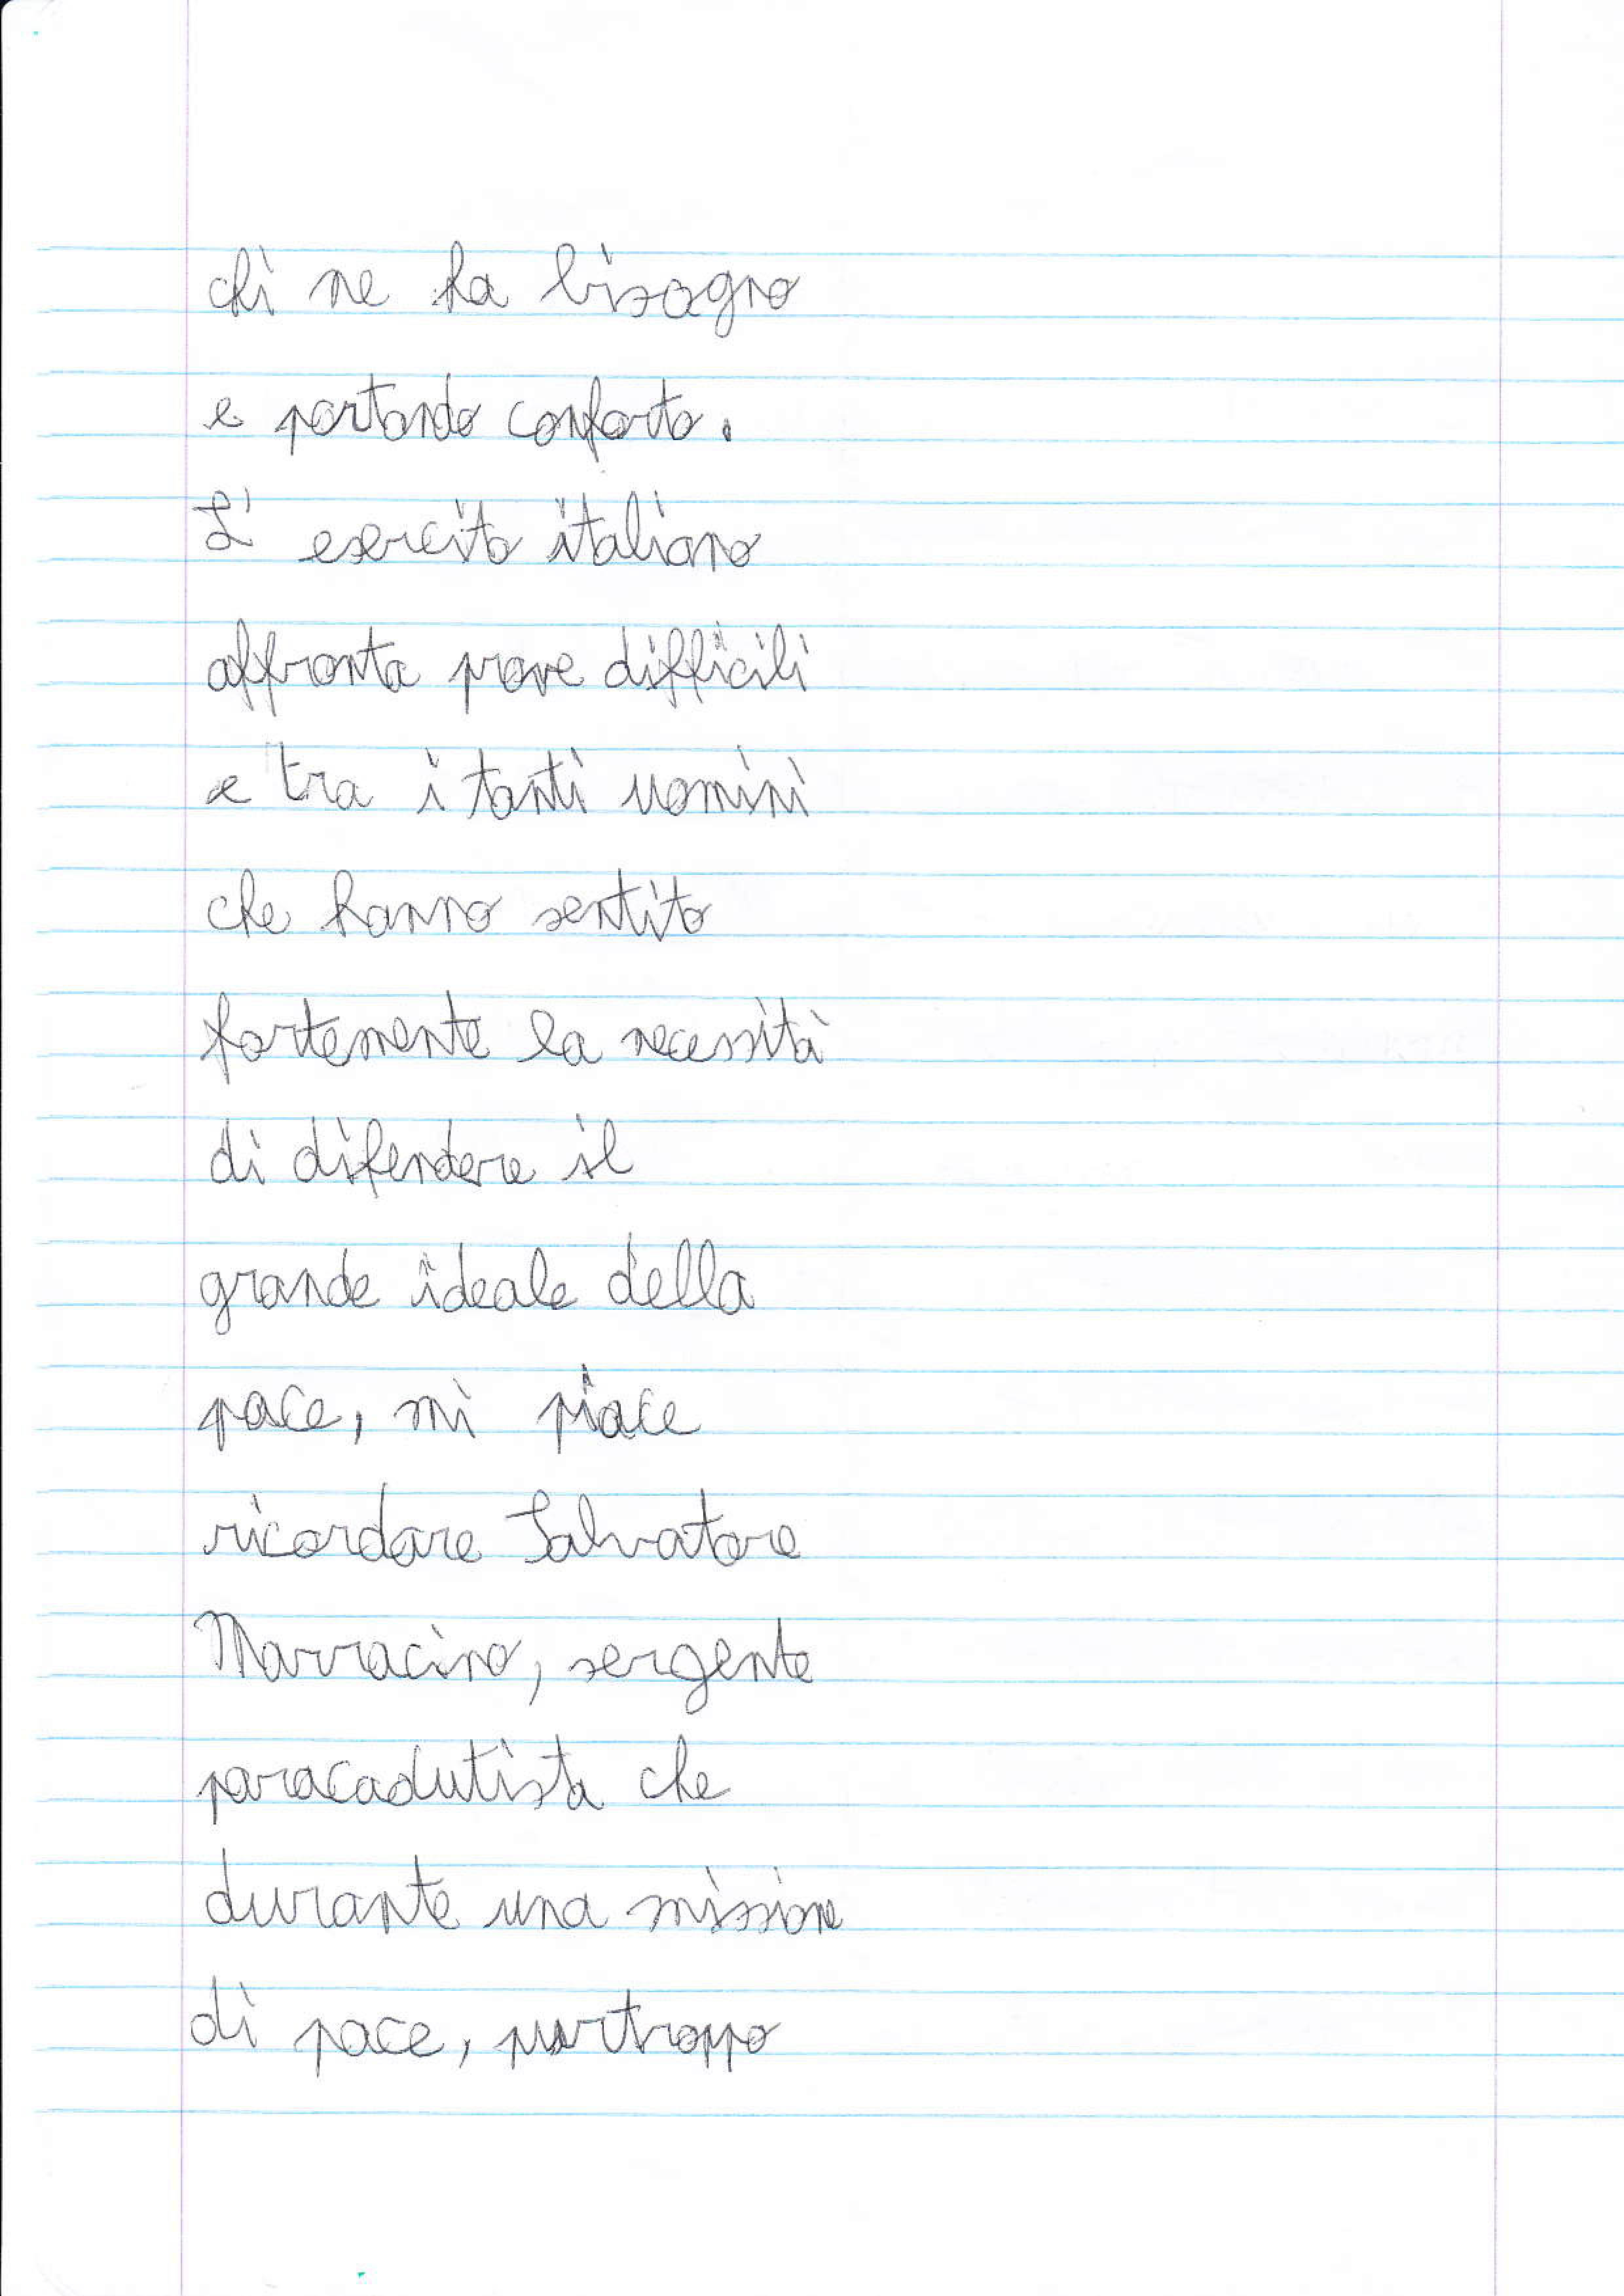 chi ne ha bisogno
e portando conforto.
L' esercito italiano
affronta prove difficili
e tra i tanti uomini
che hanno sentito
fortemente la necessità
di difendere il
grande ideale della
pace, mi piace
ricordare Salvatore
Marracino, sergente
paracadutista che
durante una missione
di pace, purtroppo